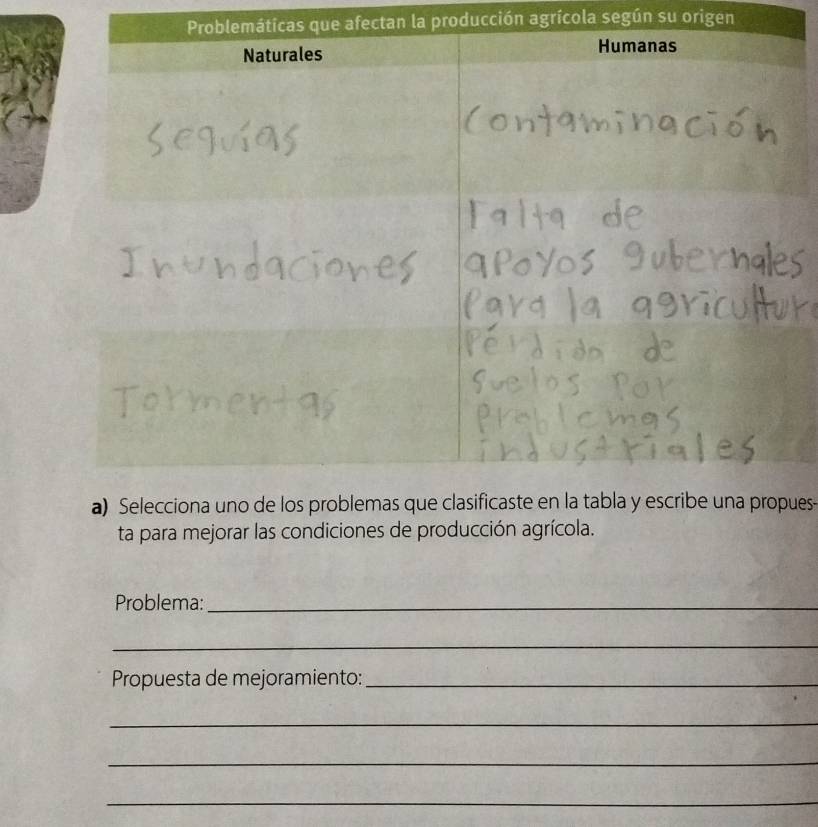 Problemáticas que afectan la producción agrícola según su origen
Naturales
Humanas
sequías
Contaminación
Inundaciones
Falta de
apoyos gubernales
para la agricultur
Tormentas
Pérdida de
suelos por
problemas
industriales
a) Selecciona uno de los problemas que clasificaste en la tabla y escribe una propues-
ta para mejorar las condiciones de producción agrícola.
Problema:
Propuesta de mejoramiento: